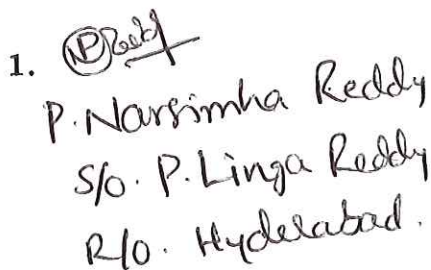 1. NP Reddy
P. Narsimha Reddy
S/o. P. Linga Reddy
R/o. Hyderabad.